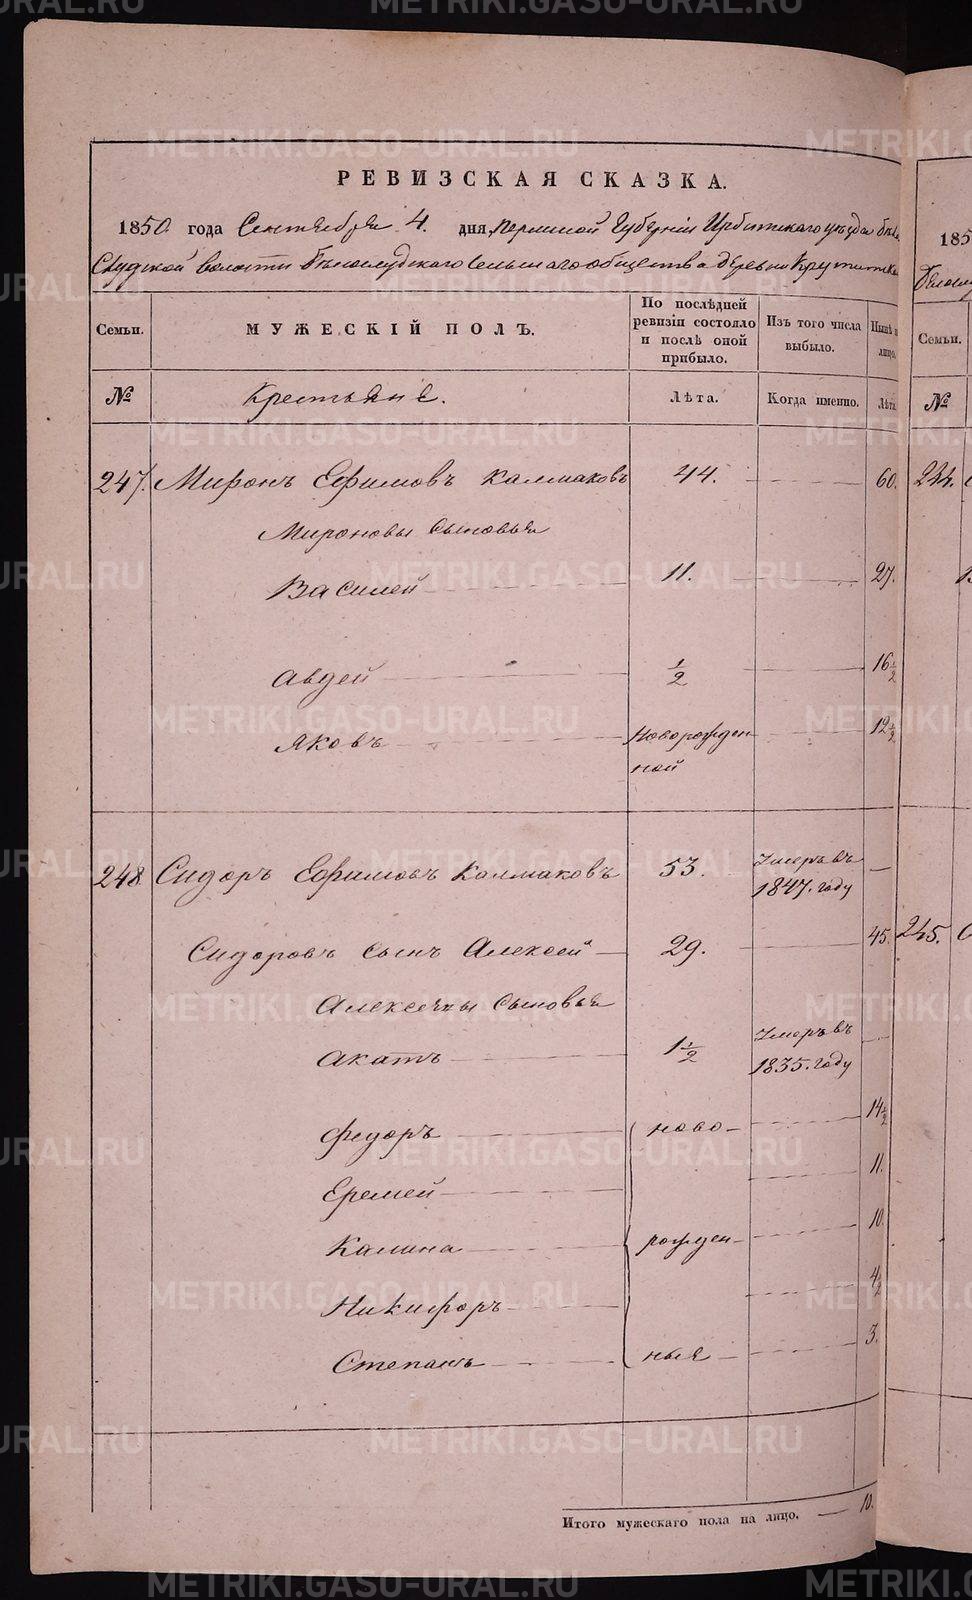 РЕВИЗСКАЯ СКАЗКА.
1850. года Сентября 4. дня, Пермской Губернiи Ирбитскаго уѣзда Бѣло
Слудской волости Бѣлослудскаго Сельскаго общества Деревни Крутитска
Семьи. МУЖЕСКІЙ ПОЛЪ. По послѣдней ревизіи состояло и послѣ оной прибыло. Изъ того числа выбыло. Нынѣ на лицо.
№ Крестьяне. Лѣта. Когда именно. Лѣта
247. Миронъ Ефимовъ Калмаковъ 44. 60.
Мироновы сыновья
Василей 11. 27.
Авдей 1/2 16 1/2
Яковъ Новорожден 12 1/2
ной
248 Сидоръ Ефимовъ Калмаковъ 53. Умеръ въ
1847. году
Сидоровъ сынъ Алексей 29. 45.
Алексѣевы сыновья
Акатъ 1 1/2 Умеръ въ
1835. году
Федоръ ново- 14 1/2
Еремей 11.
Калина рожден- 10.
Никифоръ 4 1/2
Степанъ ныя 3.
Итого мужескаго пола на лицо. 10.
185
Семьи.
№
244.
245.
METRIKI.GASO-URAL.RU